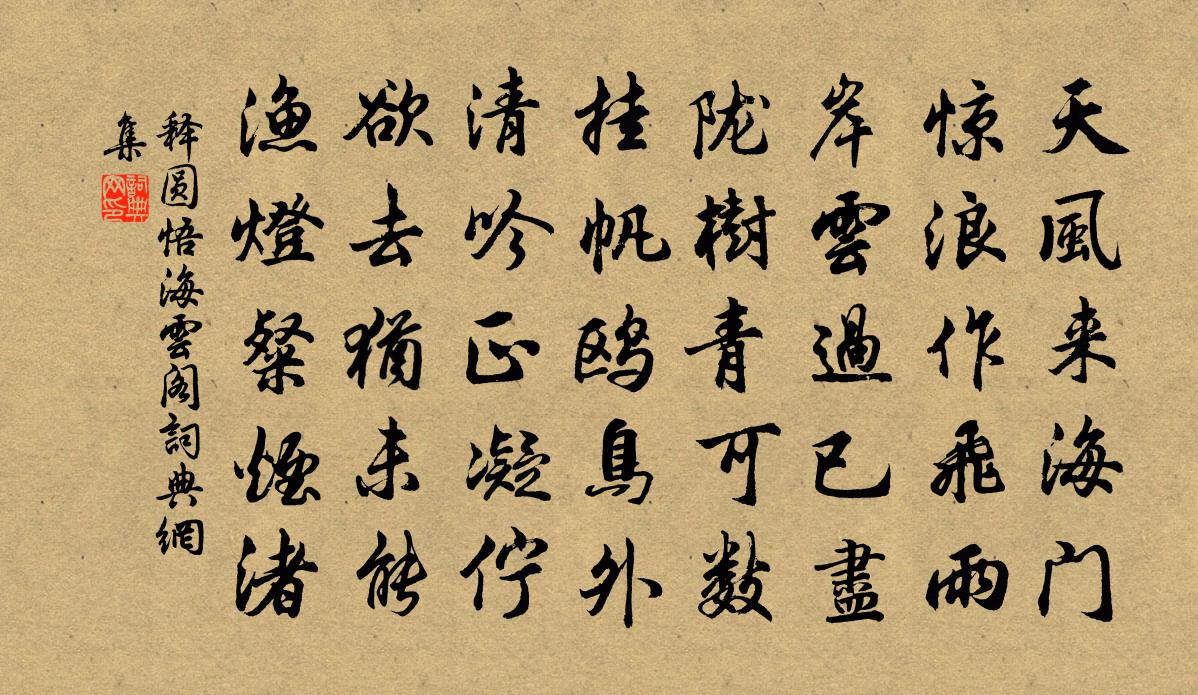 天風来海门
惊浪作飛雨
岸雲過已盡
陇樹青可数
挂帆鸥鳥外
清吟正凝佇
欲去犹未能
渔燈粲煙渚
释圆悟海雲阁詞典網
集
詞典
网印